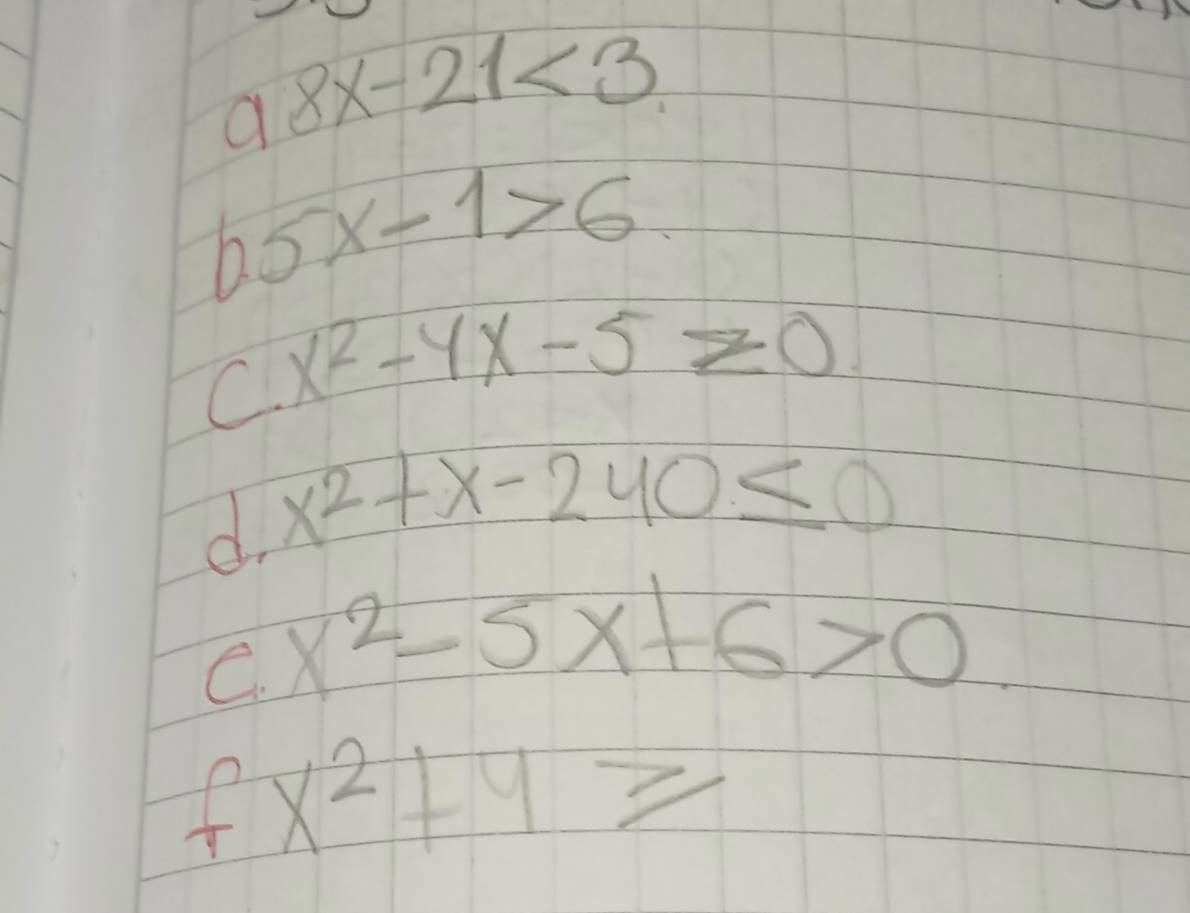 a 8x-21<3.
b.5x-1>6.
c.x²-4x-5≥0.
d.x²+x-240≤0
e.x²-5x+6>0.
f x²+4≥